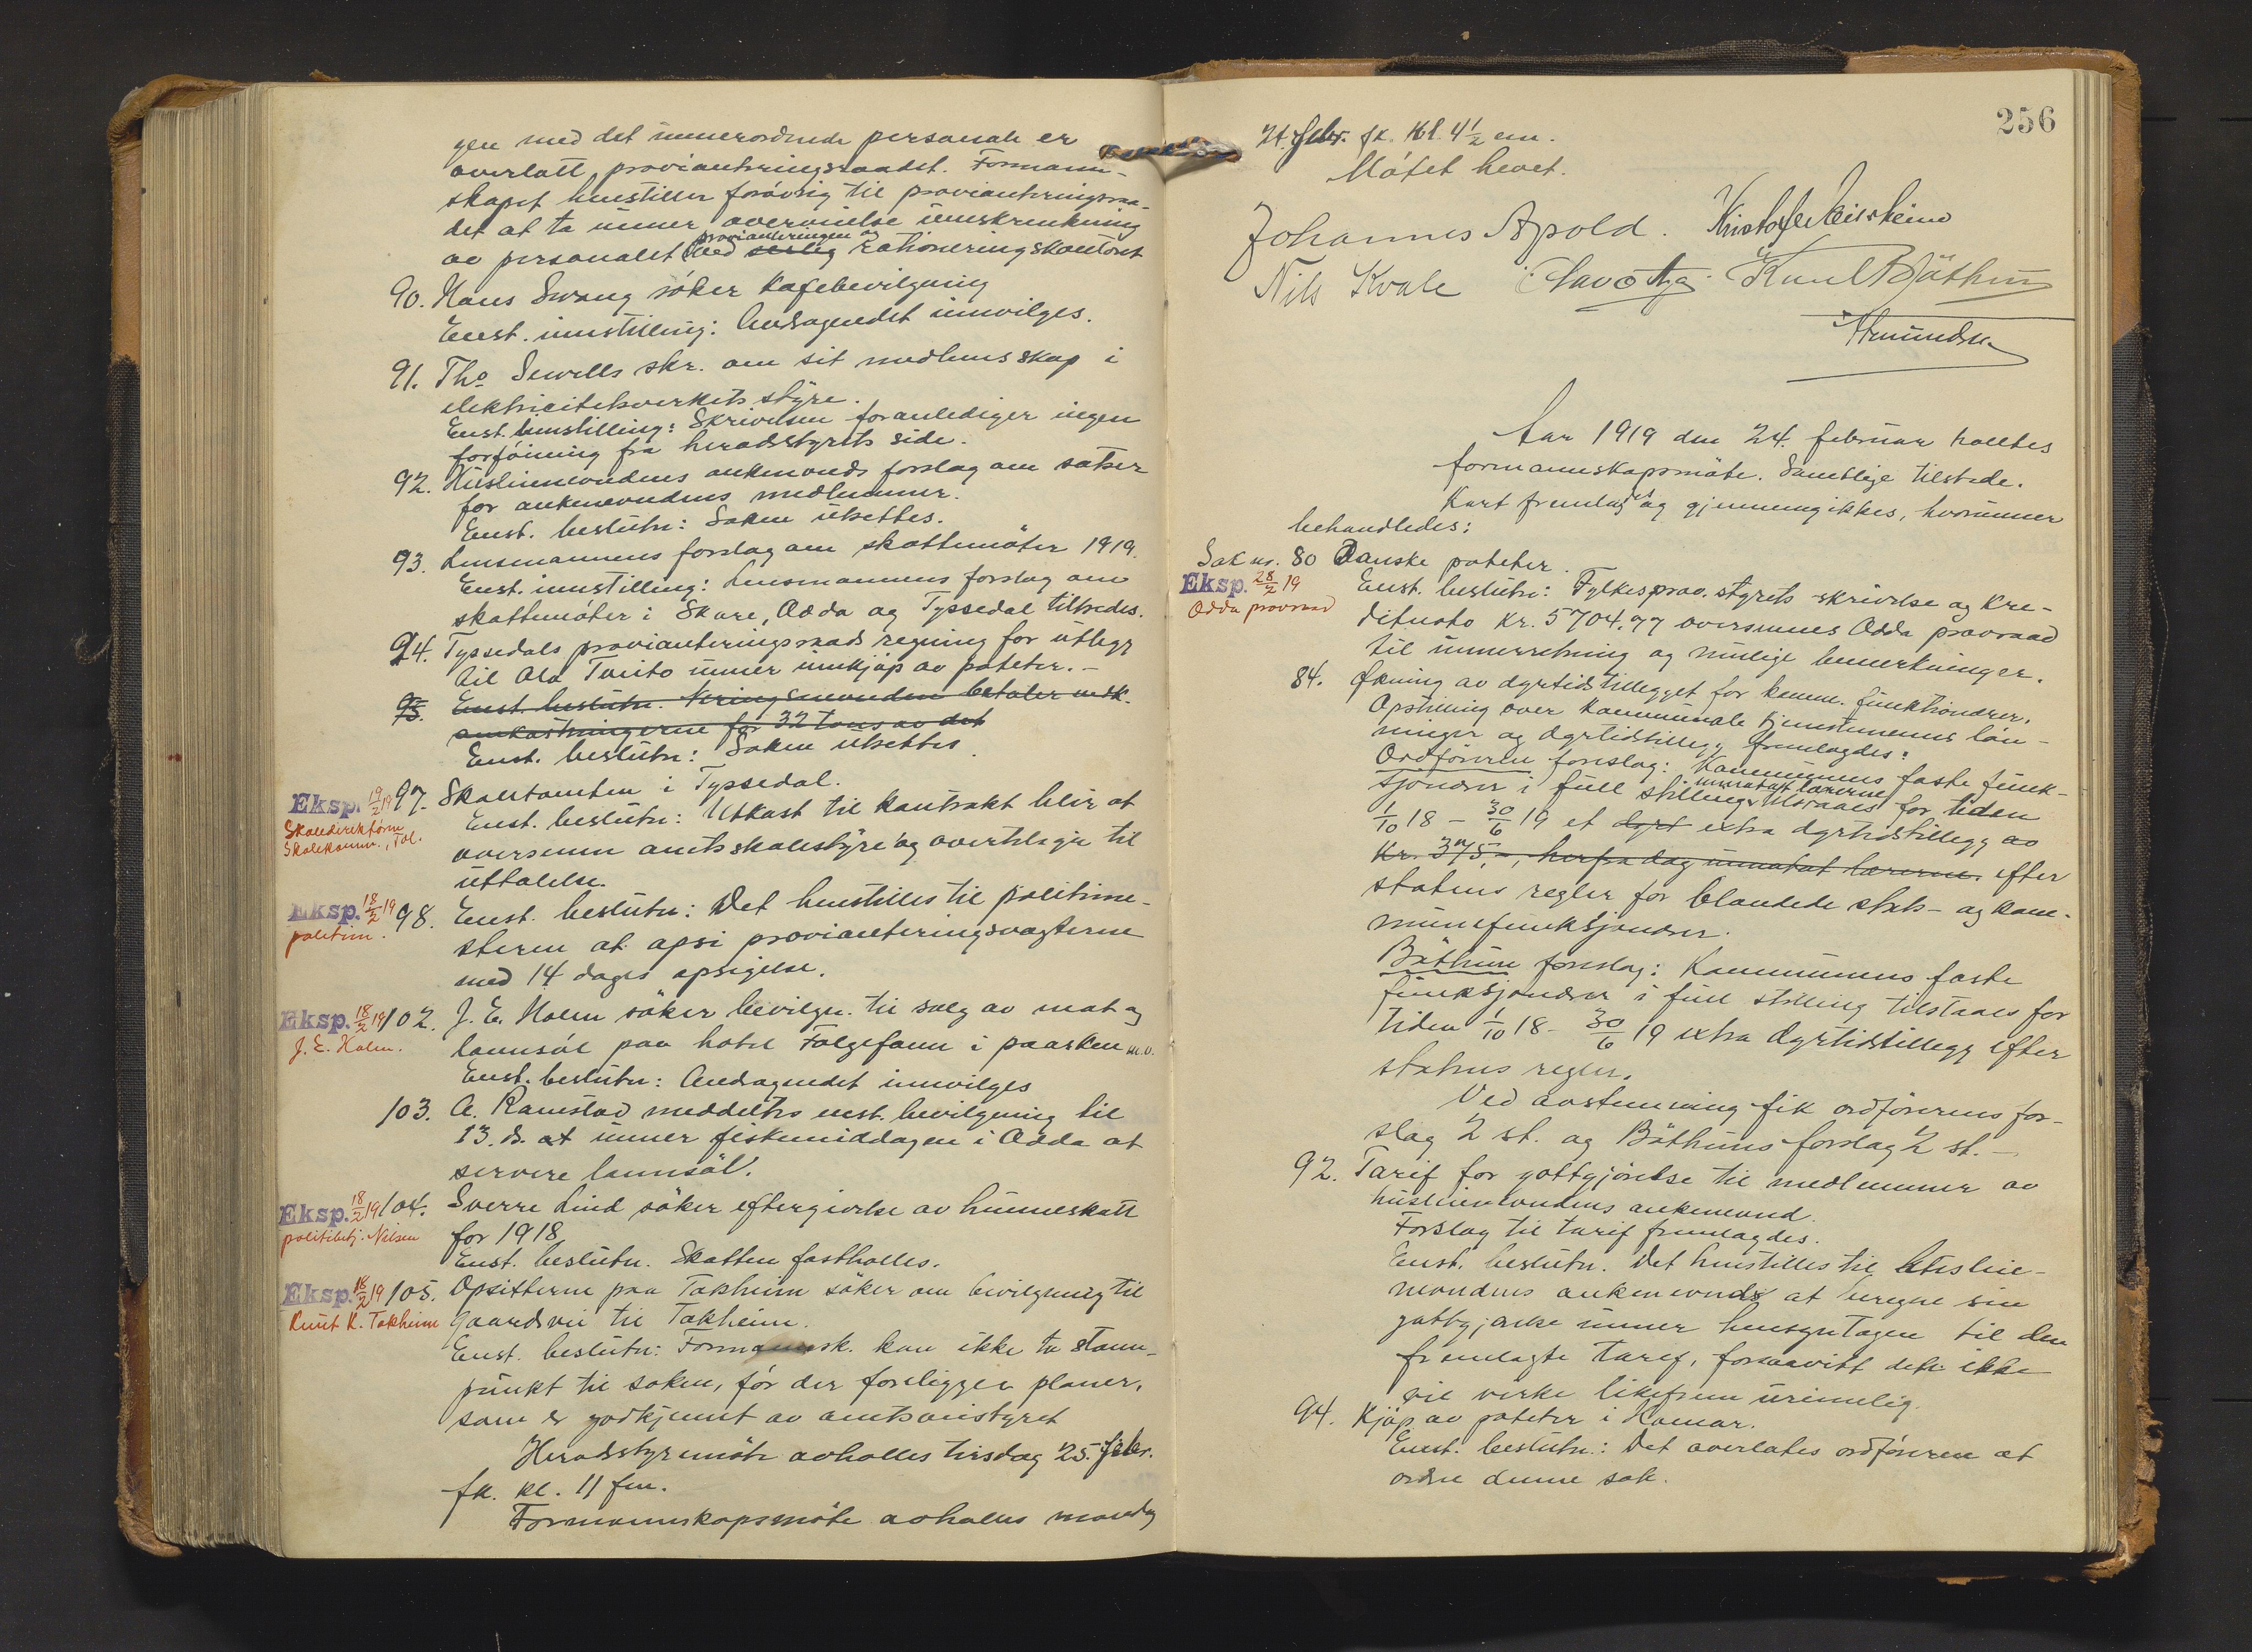 gen med det unnerordnede personale er
overlatt provianteringsraadet. Formann-
skapet henstiller forøvrig til provianteringsraa-
det at ta unner overveielse innskrenkning
provianteringen og
av personalet ved særlig rationeringskontoret
90. Hans Svang søker kafebevilgning
Enst. innstilling: Andragendet innvilges.
91. Tho Sewells skr. om sit medlemsskap i
elektricitetsverkets styre.
Enst. innstilling: Skrivelsen foranlediger ingen
forføining fra heradsstyrets side.
92. Husleienevndens ankenevnds forslag om satser
for ankenevndens medlemmer.
Enst. beslutn: Saken utsettes.
93. Lensmannens forslag om skattemøter 1919.
Enst. innstilling: Lensmannens forslag om
skattemøter i Skare, Odda og Tyssedal tiltredes.
94. Tyssedals provianteringsraads regning for utlegg
til Ola Tveito unner innkjøp av poteter. -
95. Enst. beslutn. Kringsnevnden betaler vedk.
omkostningerne for 32 tons av det
Enst. beslutn: Saken utsettes
Eksp. 19/2 19 97. Skoletomten i Tyssedal.
Skoledirektøren
Skolekomm., Tol.
Enst. beslutn: Utkast til kontrakt blir at
oversenn amtsskolestyre og overtilsyn til
uttalelse.
Eksp. 18/2 19 98. Enst. beslutn: Det henstilles til politime-
politim.
steren at opsi provianteringsvagterne
med 14 dages opsigelse.
Eksp. 18/2 19 102. J. E. Holm søker bevilgn. til salg av mat og
J. E. Holm.
lannsøl paa hotel Folgefonn i paasken m.v.
Enst. beslutn: Andragendet innvilges
103. A. Ramstad meddeltes enst. bevilgning til
13. ds. at unner fiskemiddagen i Odda at
servere lannsøl.
Eksp. 18/2 19 104. Sverre Lind søker eftergivelse av hunneskatt
politibetj. Nilsen
for 1918
Enst. beslutn. Skatten fastholles.
Eksp. 18/2 19 105. Opsitterne paa Tokheim søker om bevilgning til
Knut K. Tokheim
Gaardsvei til Tokheim.
Enst. beslutn: Formannsk. kan ikke ta stann-
punkt til saken, før der foreligger planer,
som er godkjennt av amtsveistyret
Heradsstyremøte avholles tirsdag 25. febr.
fk. kl. 11 fm.
Formannskapsmøte avholles mandag
256
24. febr. fk. kl. 4 1/2 em.
Møtet hevet.
Johannes Apold. Kristofer Meisheim
Nils Kvale Olav Aga Knut Bøthun
Amundsen
Aar 1919 den 24. februar holltes
formannskapsmøte. Samtlige tilstede.
Kart fremlagdes og gjennemgikkes, hvorunner
behandledes:
Sak nr. 80 Danske poteter.
Eksp. 28/2 19
Odda provraad
Enst. beslutn: Fylkesprov. styrets skrivelse og kre-
ditnota kr. 5704.97 oversennes Odda provraad
til unnerretning og mulige bemerkninger.
84. Økning av dyrtidstillegget for komm. funktionærer.
Opstilning over kommunale tjenestemenns løn-
ninger og dyrtidstillegg fremlagdes:
Ordføreren foreslog: Kommunens faste funk-
unntatt lærerne
sjonærer i full stilling tilstaaes for tiden
1/10 18 - 30/6 19 et dyrt extra dyrtidstillegg av
Kr. 375,-, herfra dog unntat lærerne. efter
statens regler for blandede stats- og kom-
munefunksjonærer.
Bøthun foreslog: Kommunens faste
funksjonærer i full stilling tilstaaes for
tiden 1/10 18 - 30/6 19 extra dyrtidstillegg efter
statens regler.
Ved avstemning fik ordførerens for-
slag 2 st. og Bøthuns forslag 2 st. -
92. Tarif for gottgjørelse til medlemmer av
husleienevndens ankenevnd.
Forslag til tarif fremlagdes.
Enst. beslutn. Det henstilles til husleie-
nevndens ankenevnds at beregne sin
gottgjørelse unner hensyntagen til den
fremlagte tarif, forsaavitt dette ikke
vil virke likefrem urimelig.
94. Kjøp av poteter i Hamar.
Enst. beslutn.: Det overlates ordføreren at
ordne denne sak.